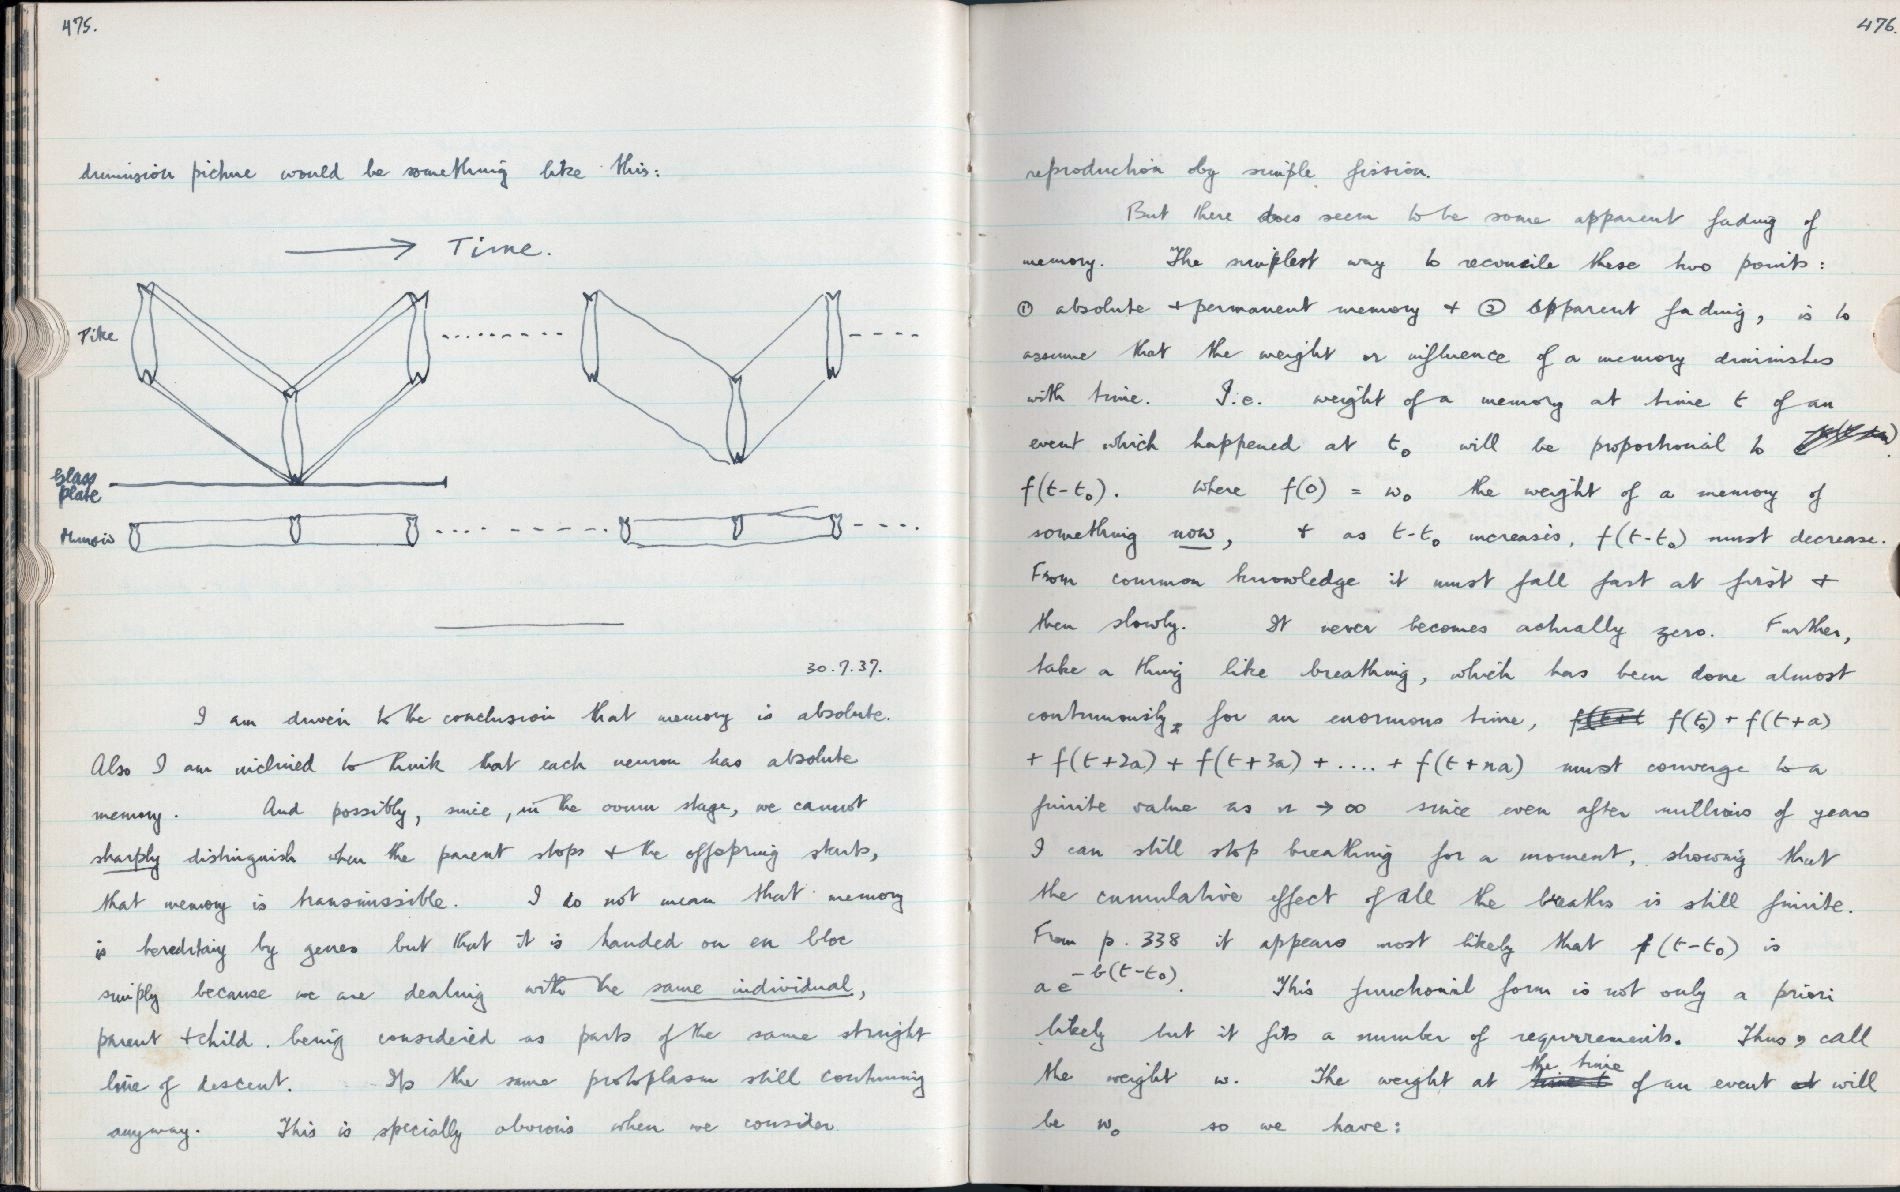 475.
dimension picture would be something like this:
Time.
Pike
Glass
plate
Minnow
30.7.37.
I am driven to the conclusion that memory is absolute.
Also I am inclined to think that each neuron has absolute
memory. And possibly, since, in the ovum stage, we cannot
sharply distinguish when the parent stops + the offspring starts,
that memory is transmissible. I do not mean that memory
is hereditary by genes but that it is handed on en bloc
simply because we are dealing with the same individual,
parent + child being considered as parts of the same straight
line of descent. Its the same protoplasm still continuing
anyway. This is specially obvious when we consider
476.
reproduction by simple fission.
But there does seem to be some apparent fading of
memory. The simplest way to reconcile these two points:
① absolute + permanent memory + ② apparent fading, is to
assume that the weight or influence of a memory diminishes
with time. I.e. weight of a memory at time t of an
event which happened at t₀ will be proportional to
f(t-t₀). Where f(0) = w₀ the weight of a memory of
something now, + as t-t₀ increases, f(t-t₀) must decrease.
From common knowledge it must fall fast at first +
then slowly. It never becomes actually zero. Further,
take a thing like breathing, which has been done almost
continuously, for an enormous time, f(t₀) + f(t+a)
+ f(t+2a) + f(t+3a) + .... + f(t+na) must converge to a
finite value as n → ∞ since even after millions of years
I can still stop breathing for a moment, showing that
the cumulative effect of all the breaths is still finite.
From p. 338 it appears most likely that f(t-t₀) is
a e^-b(t-t₀). This functional form is not only a priori
likely but it fits a number of requirements. Thus, call
the weight w. The weight at the time of an event will
be w₀ so we have: